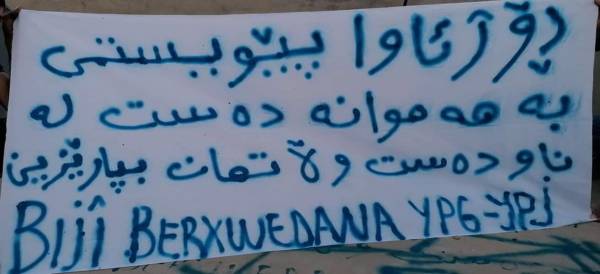 ڕۆژئاوا پێویستی
بە هەموانە دەست لە
ناو دەست وڵاتمان بپارێزین
BIJÎ BERXWEDANA YPG-YPJ